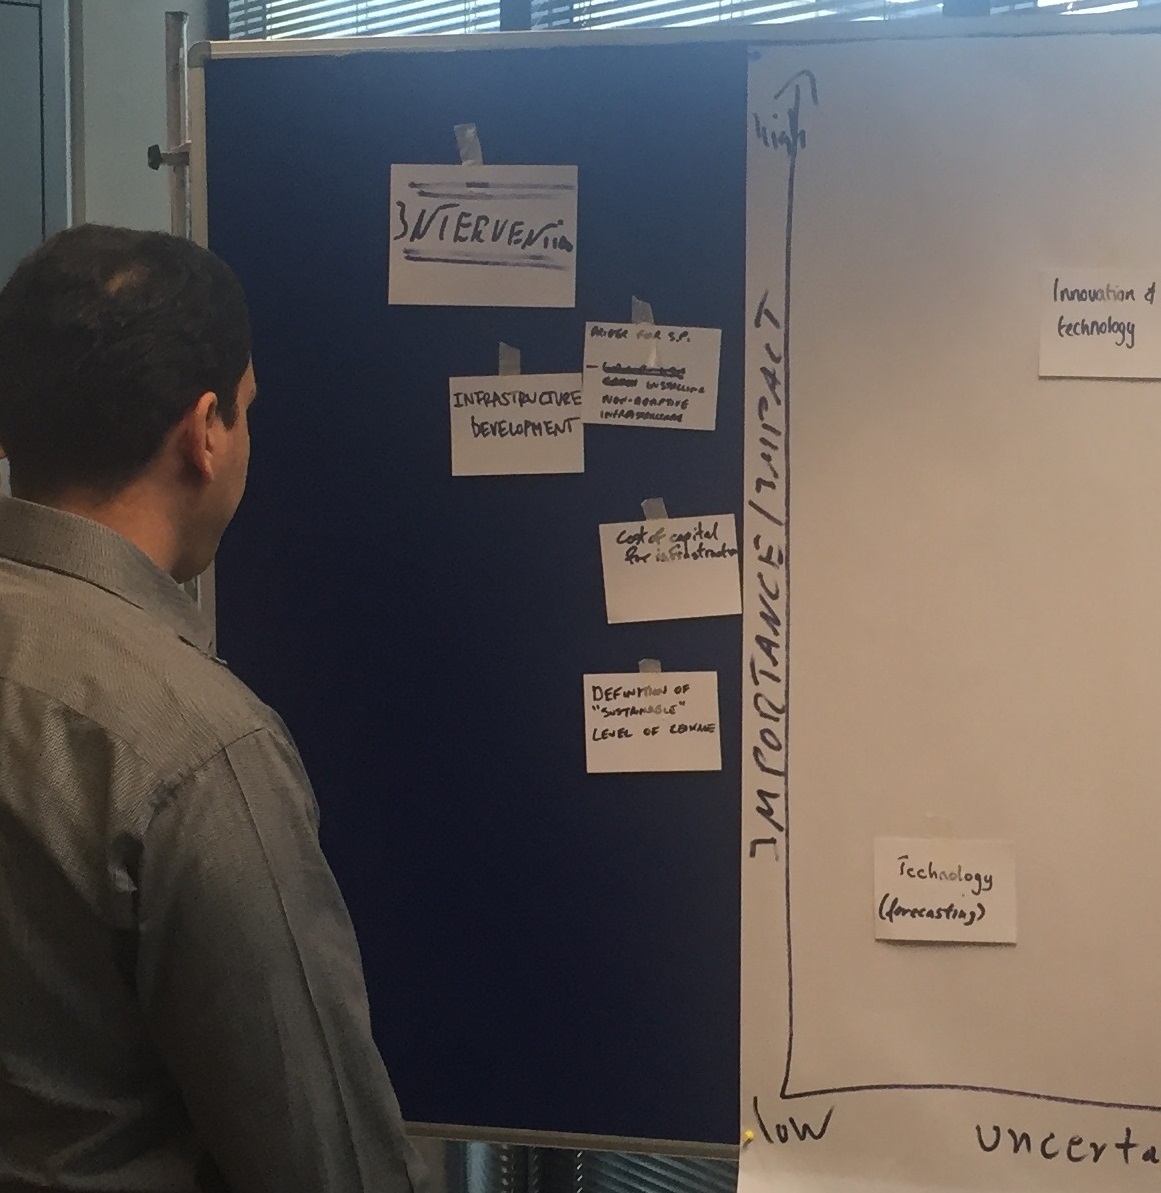 INTERVENTION
INFRASTRUCTURE
DEVELOPMENT
FOR S.P.
INSTALLING
NON-ADAPTIVE
INFRASTRUCTURE
Cost of capital
for infrastructure
DEFINITION OF
"SUSTAINABLE"
LEVEL OF
high
IMPORTANCE/IMPACT
Innovation &
technology
Technology
(forecasting)
low
uncerta